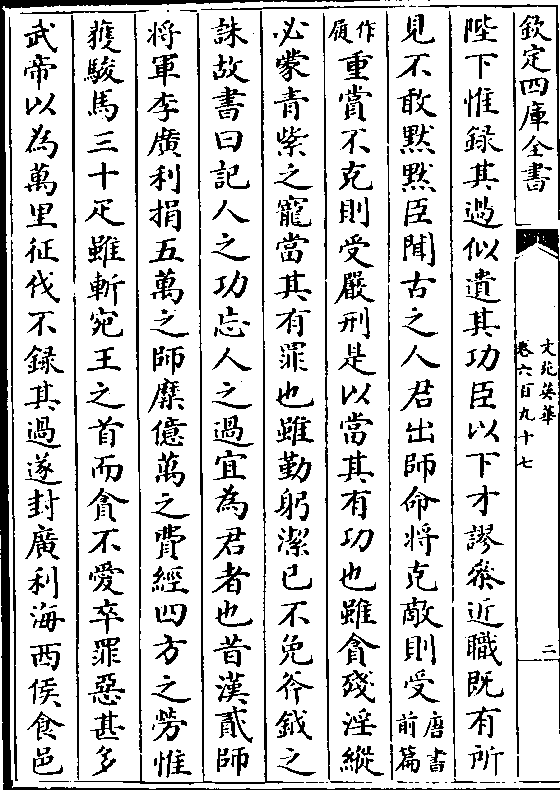 欽定四庫全書
文苑英華
卷六百九十七
二
陛下惟録其過似遺其功臣以下才謬叅近職既有所
見不敢黙黙臣聞古之人君出師命將克敵則受唐書前篇
作顧重賞不克則受嚴刑是以當其有功也雖貪殘淫縱
必蒙青紫之寵當其有罪也雖勤躬潔已不免斧鉞之
誅故書曰記人之功忘人之過宜為君者也昔漢貳師
將軍李廣利捐五萬之師糜億萬之費經四方之勞惟
獲駿馬三十疋雖斬宛王之首而貪不愛卒罪惡甚多
武帝以為萬里征伐不録其過遂封廣利海西侯食邑